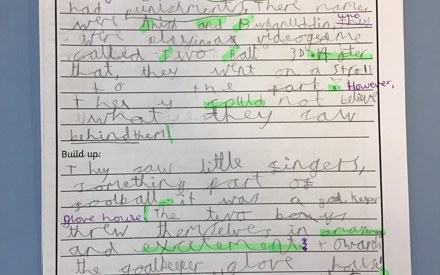 had punishments. There name
were and Muhanuddin, who They
were playing a videogame
called Two Ball 3D. After
that, they went on a stroll
to the park. However,
they could not believe
what they saw
behind them!
Build up:
They saw little fingers,
something part of
football. it was a goal keeper
glove house! The two bouys
threw themselves in amazement
and excitement towards
the goalkeeper glove house!